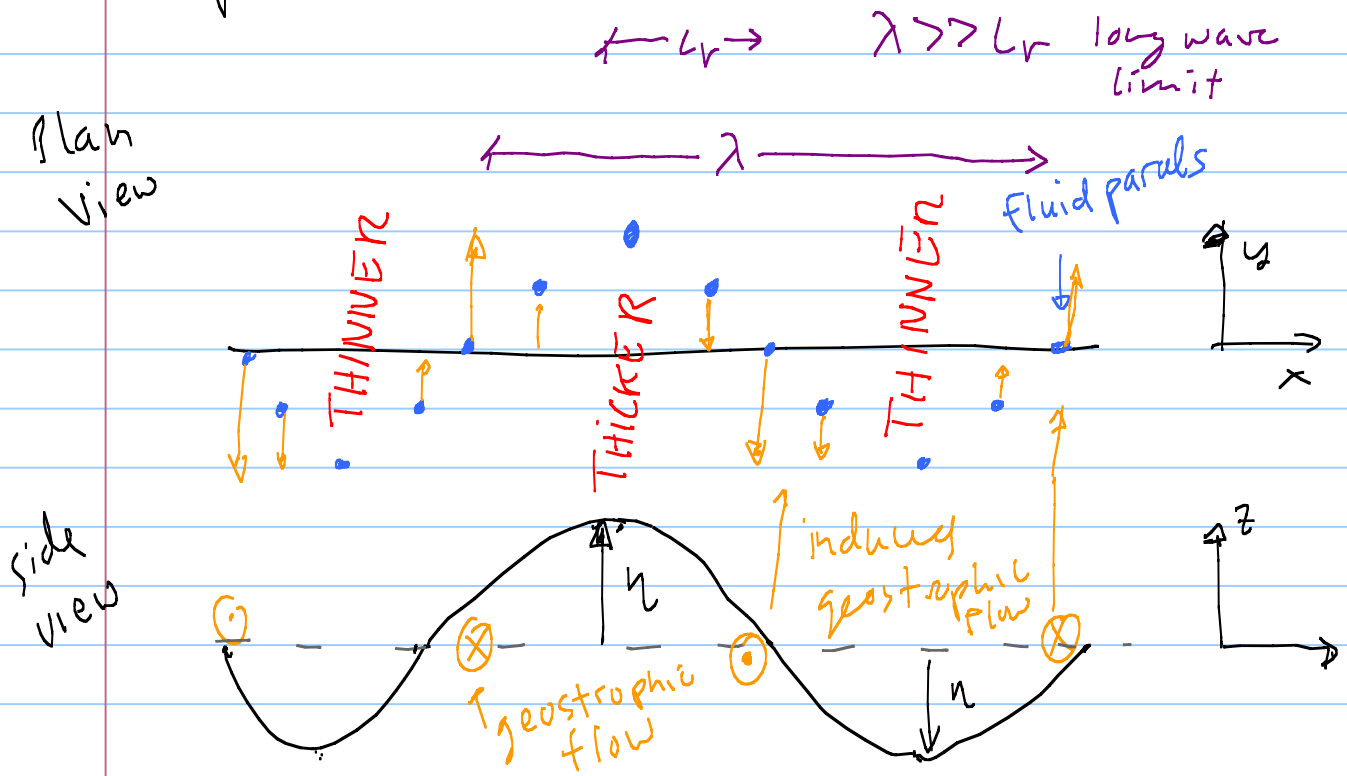 Lr
λ >> Lr long wave
limit
Plan
view
λ
fluid parcels
THINNER
THICKER
THINNER
y
x
side
view
η
induced
geostrophic
flow
geostrophic
flow
η
z